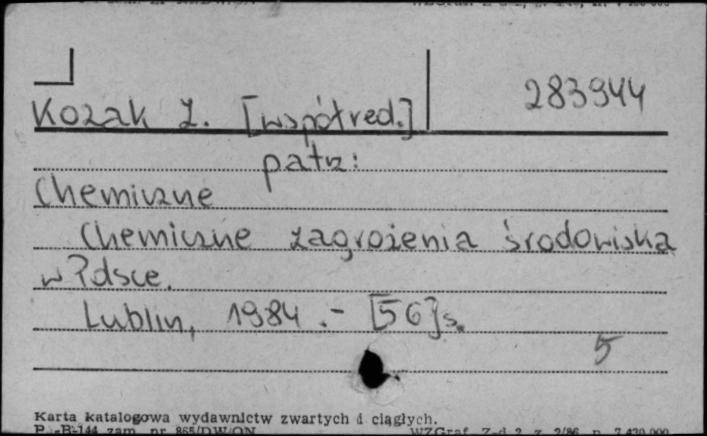 283944
Kozak Z. [współred.]
patrz:
Chemiczne
Chemiczne zagrożenia środowiska
w Polsce.
Lublin, 1984 .- [56]s.
5
Karta katalogowa wydawnictw zwartych i ciągłych.
P -B-144 zam. nr 865/DW/ON WZGraf. Z-d 2 z. 2/86 n. 7.430.000